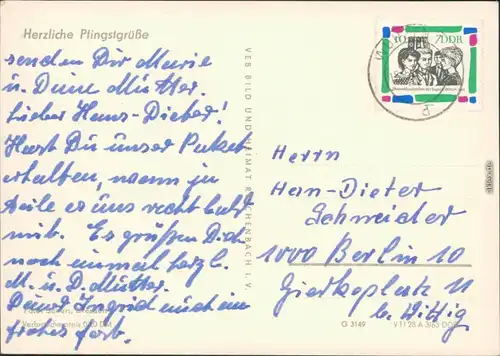 Herzliche Pfingstgrüße
senden Dir Marie
u. Deine Mutter.
Lieber Hans-Dieter!
Hast Du unser Paket
erhalten, wenn ja
teile es uns recht bald
mit. Es grüßen Dich
noch einmal herzl.
M. u. D. Mutter.
Ingrid
frohes
VEB BILD UND HEIMAT REICHENBACH I. V.
10 DDR
Herrn
Han-Dieter
Schneider
1000 Berlin 10
11
b. Wittig
G 3149
V 11 28 A 3/63 DDR